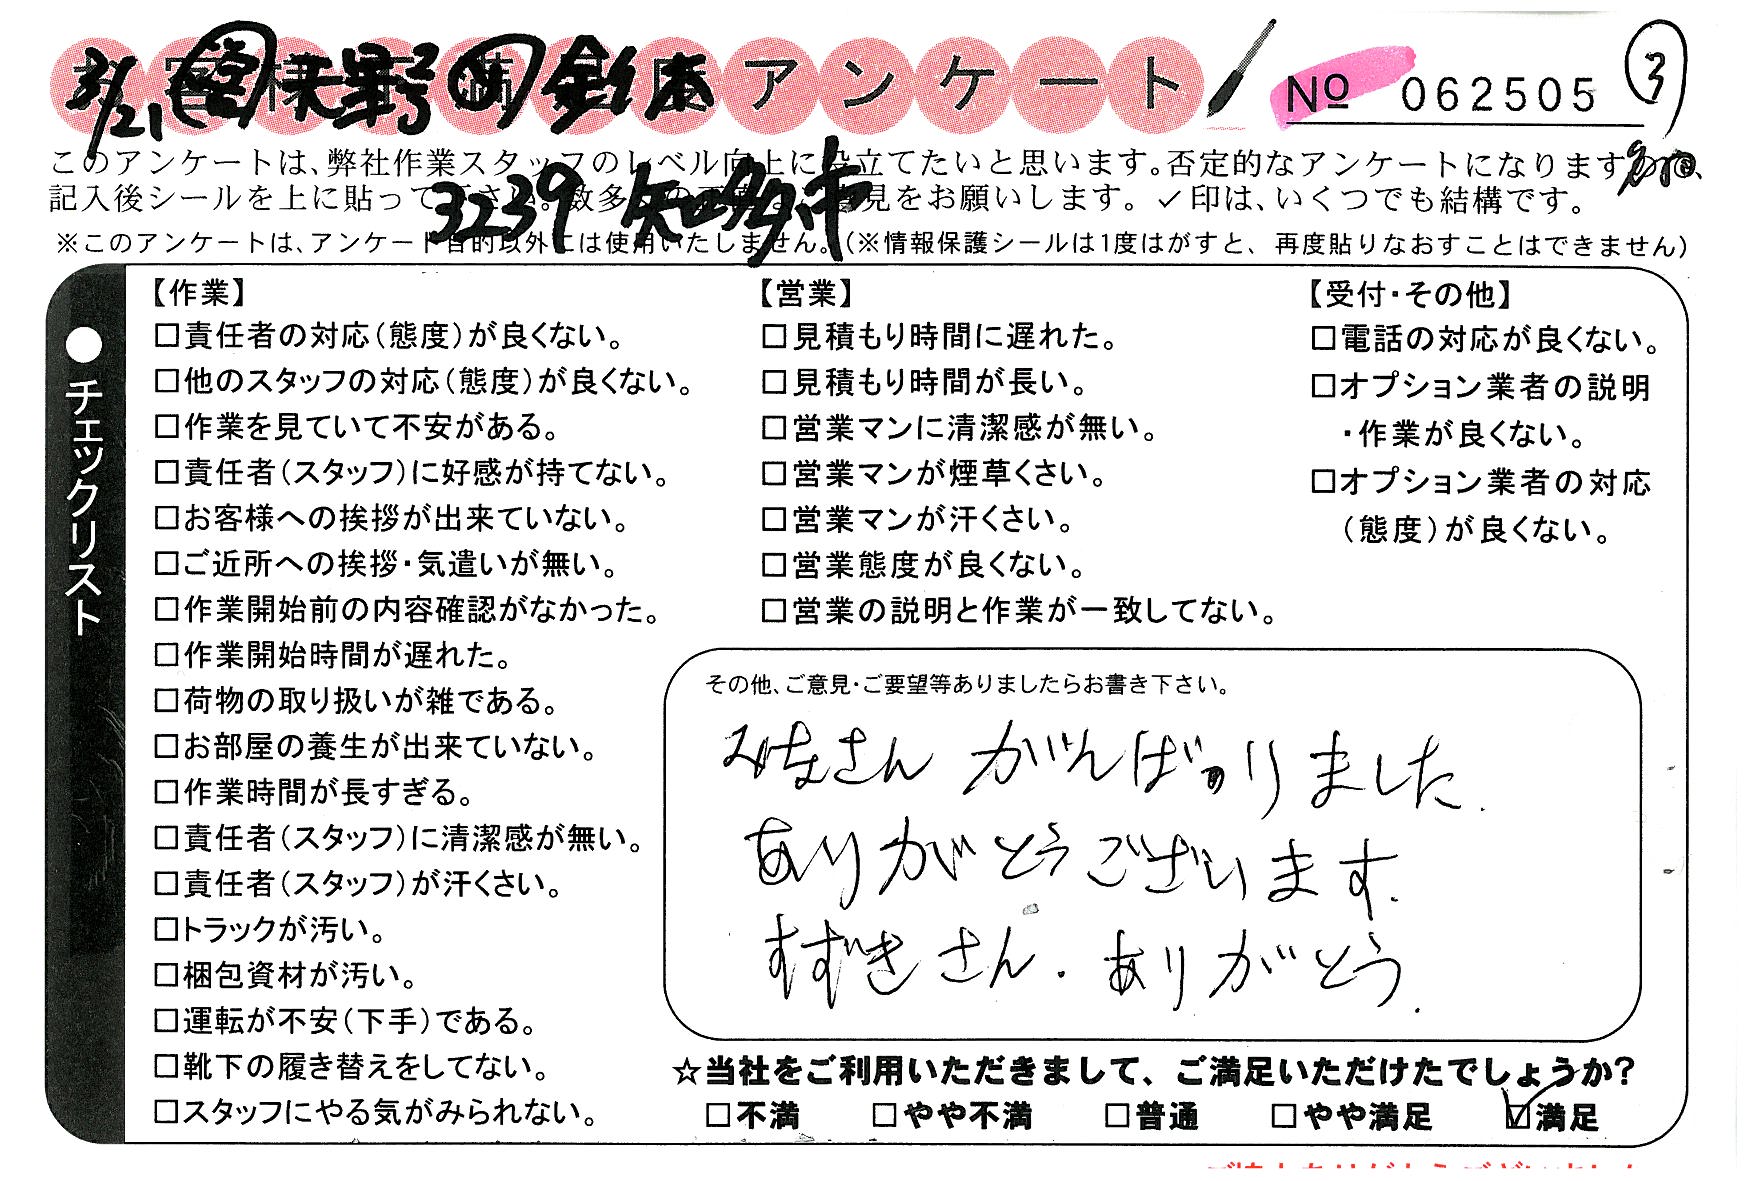 アンケート
No 062505
3
3/21 鈴木
3239 知多市
このアンケートは、弊社作業スタッフのレベル向上に役立てたいと思います。否定的なアンケートになります
記入後シールを上に貼って下さい。数多くの 意見をお願いします。✓印は、いくつでも結構です。
※このアンケートは、アンケート目的以外には使用いたしません。(※情報保護シールは1度はがすと、再度貼りなおすことはできません)
●チェックリスト
【作業】
□責任者の対応(態度)が良くない。
□他のスタッフの対応(態度)が良くない。
□作業を見ていて不安がある。
□責任者(スタッフ)に好感が持てない。
□お客様への挨拶が出来ていない。
□ご近所への挨拶・気遣いが無い。
□作業開始前の内容確認がなかった。
□作業開始時間が遅れた。
□荷物の取り扱いが雑である。
□お部屋の養生が出来ていない。
□作業時間が長すぎる。
□責任者(スタッフ)に清潔感が無い。
□責任者(スタッフ)が汗くさい。
□トラックが汚い。
□梱包資材が汚い。
□運転が不安(下手)である。
□靴下の履き替えをしてない。
□スタッフにやる気がみられない。
【営業】
□見積もり時間に遅れた。
□見積もり時間が長い。
□営業マンに清潔感が無い。
□営業マンが煙草くさい。
□営業マンが汗くさい。
□営業態度が良くない。
□営業の説明と作業が一致してない。
【受付・その他】
□電話の対応が良くない。
□オプション業者の説明
・作業が良くない。
□オプション業者の対応
(態度)が良くない。
その他、ご意見・ご要望等ありましたらお書き下さい。
みなさん がんばりました.
ありがとうございます.
すずきさん. ありがとう.
☆当社をご利用いただきまして、ご満足いただけたでしょうか?
□不満 □やや不満 □普通 □やや満足 ☑満足